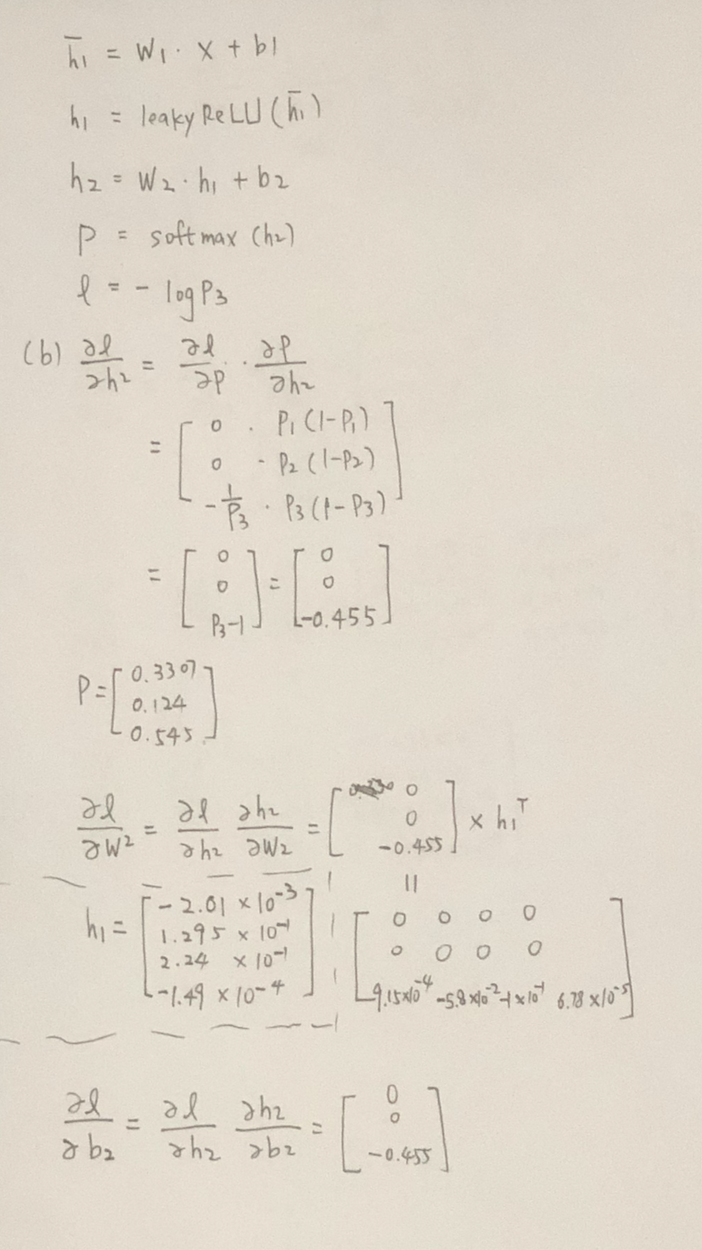 h̄₁ = W₁ · x + b1
h₁ = leaky ReLU (h̄₁)
h₂ = W₂ · h₁ + b₂
P = softmax (h₂)
ℓ = - log P₃
(b) ∂ℓ/∂h₂ = ∂ℓ/∂P · ∂P/∂h₂
= [ 0 · P₁ (1-P₁)
0 · P₂ (1-P₂)
-1/P₃ · P₃ (1-P₃) ]
= [ 0 0 P₃-1 ] = [ 0 0 -0.455 ]
P = [ 0.3307
0.124
0.545 ]
∂ℓ/∂W² = ∂ℓ/∂h₂ ∂h₂/∂W₂ = [ 0 0 -0.455 ] × h₁ᵀ
||
h₁ = [ -2.01 × 10⁻³
1.295 × 10⁻¹
2.24 × 10⁻¹
-1.49 × 10⁻⁴ ]
[ 0 0 0 0
0 0 0 0
9.15×10⁻⁴ -5.8×10⁻² -1×10⁻¹ 6.78×10⁻⁵ ]
∂ℓ/∂b₂ = ∂ℓ/∂h₂ ∂h₂/∂b₂ = [ 0 0 -0.455 ]